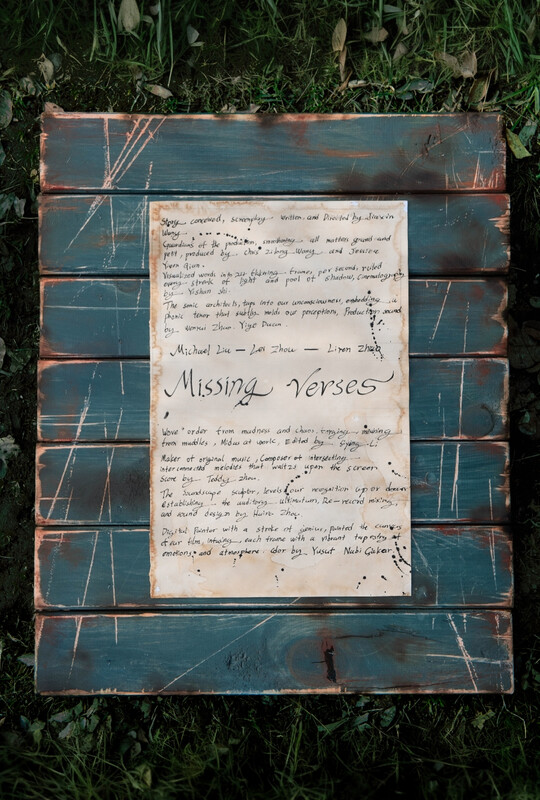 Story conceived, screenplay written and Directed by
Wang
Guardians of the production, all matters grand and
petit, produced by Chris Wang and Jessica
Yuen Qian.
Visualized words into 24 frames per second, ruled
every stroke of light and pool of shadow, Cinematography
by Yishan
The sonic architects, tap into our unconsciousness, embedding a
phonic tenor that subtly molds our perceptions, Production sound
by Zhan. Yige
Michael Liu — Lei Zhou — Liren
Missing Verses
Wove order from madness and chaos, meaning
from muddles, Midas at work, Edited by Li
Maker of original music, Composer of intersecting
interconnected melodies that waltz upon the screen
Score by Teddy Zhou.
The Soundscape sculptor, levels our recognition up or down
establishing the auditory ultimatum, Re-record mixing
and sound design by Zhou
Digital Painter with a stroke of genius, painted the canvas
of our film, each frame with a vibrant tapestry of
emotions and atmosphere. Color by Yusuf Nabi